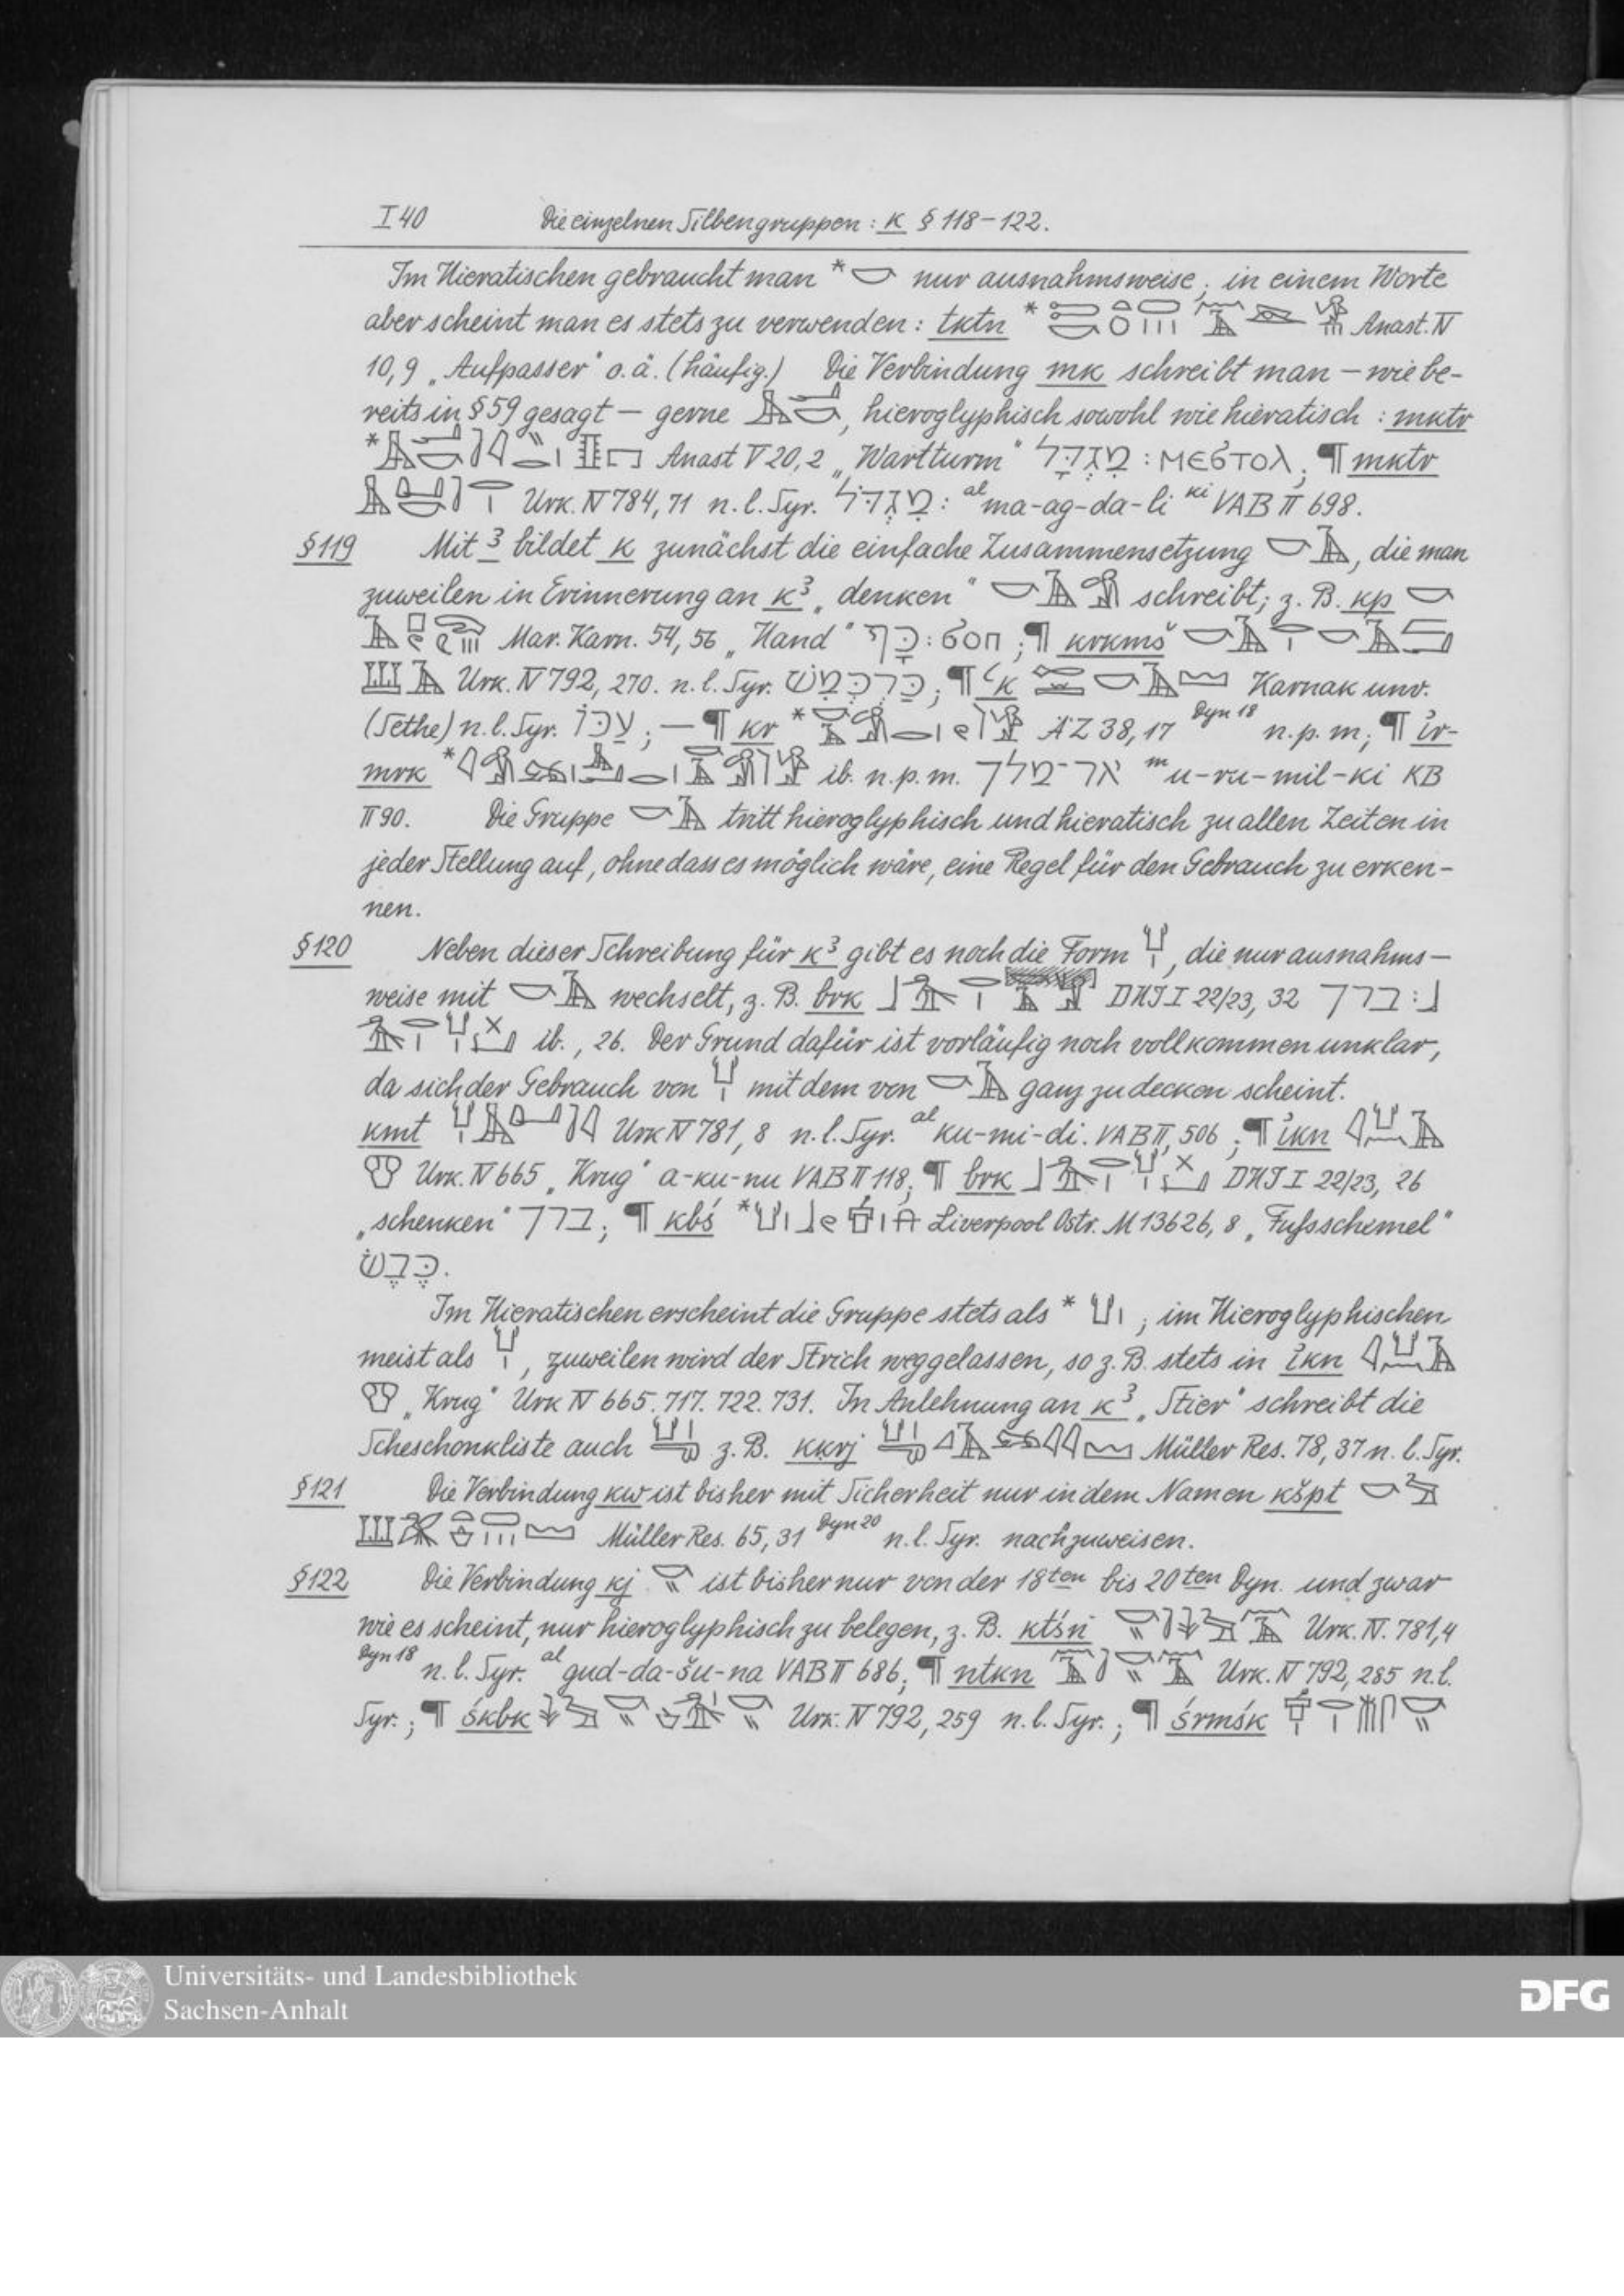 I 40 Die einzelnen Silbengruppen: k § 118–122.
Im Hieratischen gebraucht man * nur ausnahmsweise; in einem Worte
aber scheint man es stets zu verwenden: tktn * Anast. IV
10,9 „Aufpasser" o. ä. (häufig.) Die Verbindung mk schreibt man – wie be-
reits in § 59 gesagt – gerne , hieroglyphisch sowohl wie hieratisch: mktr
* Anast V 20,2 „Wartturm" מִגְדָּל : ⲙⲉϭⲧⲟⲗ; ¶ mktr
Urk. IV 784, 71 n. l. Syr. מִגְדֹּל: ᵃˡma-ag-da-li ᵏⁱ VAB II 698.
§ 119 Mit ꜣ bildet k zunächst die einfache Zusammensetzung , die man
zuweilen in Erinnerung an kꜣ „denken" schreibt; z. B. kp
Mar. Karn. 54, 56 „Hand" כַּף : ϭⲟⲡ; ¶ krkmš
Urk. IV 792, 270. n. l. Syr. כַּרְכְּמִשׁ; ¶ ꜥk Karnak unv.
(Sethe) n. l. Syr. עַכּוֹ; — ¶ kr * ÄZ 38, 17 Dyn 18 n. p. m; ¶ ı͗r-
mrk * ib. n. p. m. אר־מלך ᵐu-ru-mil-ki KB
II 90. Die Gruppe tritt hieroglyphisch und hieratisch zu allen Zeiten in
jeder Stellung auf, ohne dass es möglich wäre, eine Regel für den Gebrauch zu erken-
nen.
§ 120 Neben dieser Schreibung für kꜣ gibt es noch die Form , die nur ausnahms-
weise mit wechselt, z. B. brk DHI I 22/23, 32 ברך :
ib., 26. Der Grund dafür ist vorläufig noch vollkommen unklar,
da sich der Gebrauch von mit dem von ganz zu decken scheint.
kmt Urk IV 781, 8 n. l. Syr. ᵃˡku-mi-di. VAB II, 506; ¶ ı͗kn
Urk. IV 665 „Krug" a-ku-nu VAB II 118; ¶ brk DHI I 22/23, 26
„schenken" ברך; ¶ kbś * Liverpool Ostr. M 13626, 8 „Fußschemel"
כֶּבֶשׁ.
Im Hieratischen erscheint die Gruppe stets als * ; im Hieroglyphischen
meist als , zuweilen wird der Strich weggelassen, so z. B. stets in ı͗kn
„Krug" Urk IV 665. 717. 722. 731. In Anlehnung an kꜣ „Stier" schreibt die
Scheschonkliste auch z. B. kḳrj Müller Res. 78, 37 n. l. Syr.
§ 121 Die Verbindung kw ist bisher mit Sicherheit nur in dem Namen kšpt
Müller Res. 65, 31 Dyn 20 n. l. Syr. nachzuweisen.
§ 122 Die Verbindung kj ist bisher nur von der 18ten bis 20ten Dyn. und zwar
wie es scheint, nur hieroglyphisch zu belegen, z. B. ktśn Urk. IV. 781,4
Dyn 18 n. l. Syr. ᵃˡgud-da-šu-na VAB II 686; ¶ ntkn Urk. IV 792, 285 n. l.
Syr.; ¶ śkbk Urk. IV 792, 259 n. l. Syr.; ¶ śrmśk
Universitäts- und Landesbibliothek
Sachsen-Anhalt
DFG